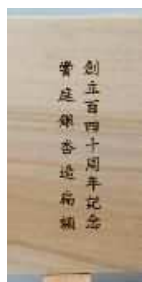 創立百四十周年記念
黌庭銀杏造扁額